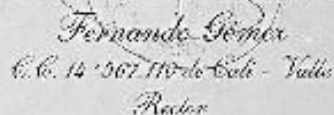 Fernando Gómez
C.C. 14'967.110 de Cali - Valle
Rector